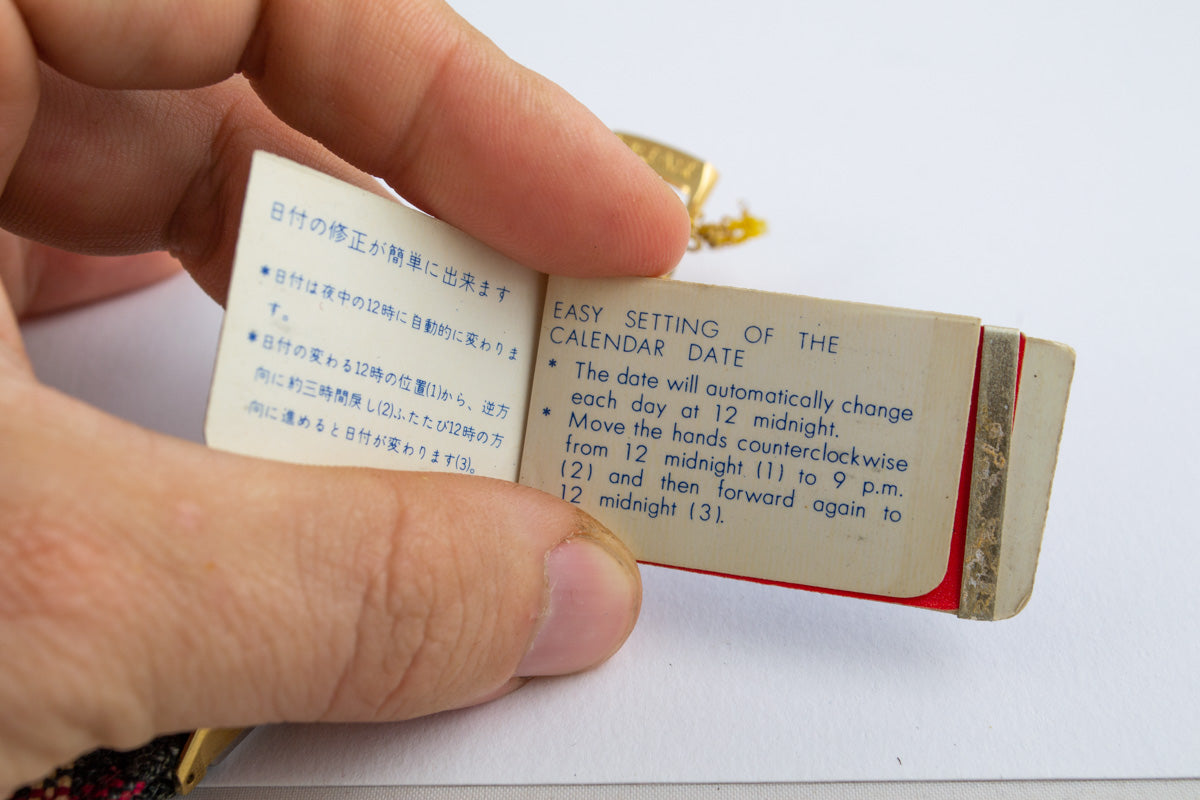 日付の修正が簡単に出来ます
*日付は夜中の12時に自動的に変わりま
す。
*日付の変わる12時の位置(1)から、逆方
向に約三時間戻し(2)ふたたび12時の方
向に進めると日付が変わります(3)。
EASY SETTING OF THE
CALENDAR DATE
* The date will automatically change
each day at 12 midnight.
* Move the hands counterclockwise
from 12 midnight (1) to 9 p.m.
(2) and then forward again to
12 midnight (3).